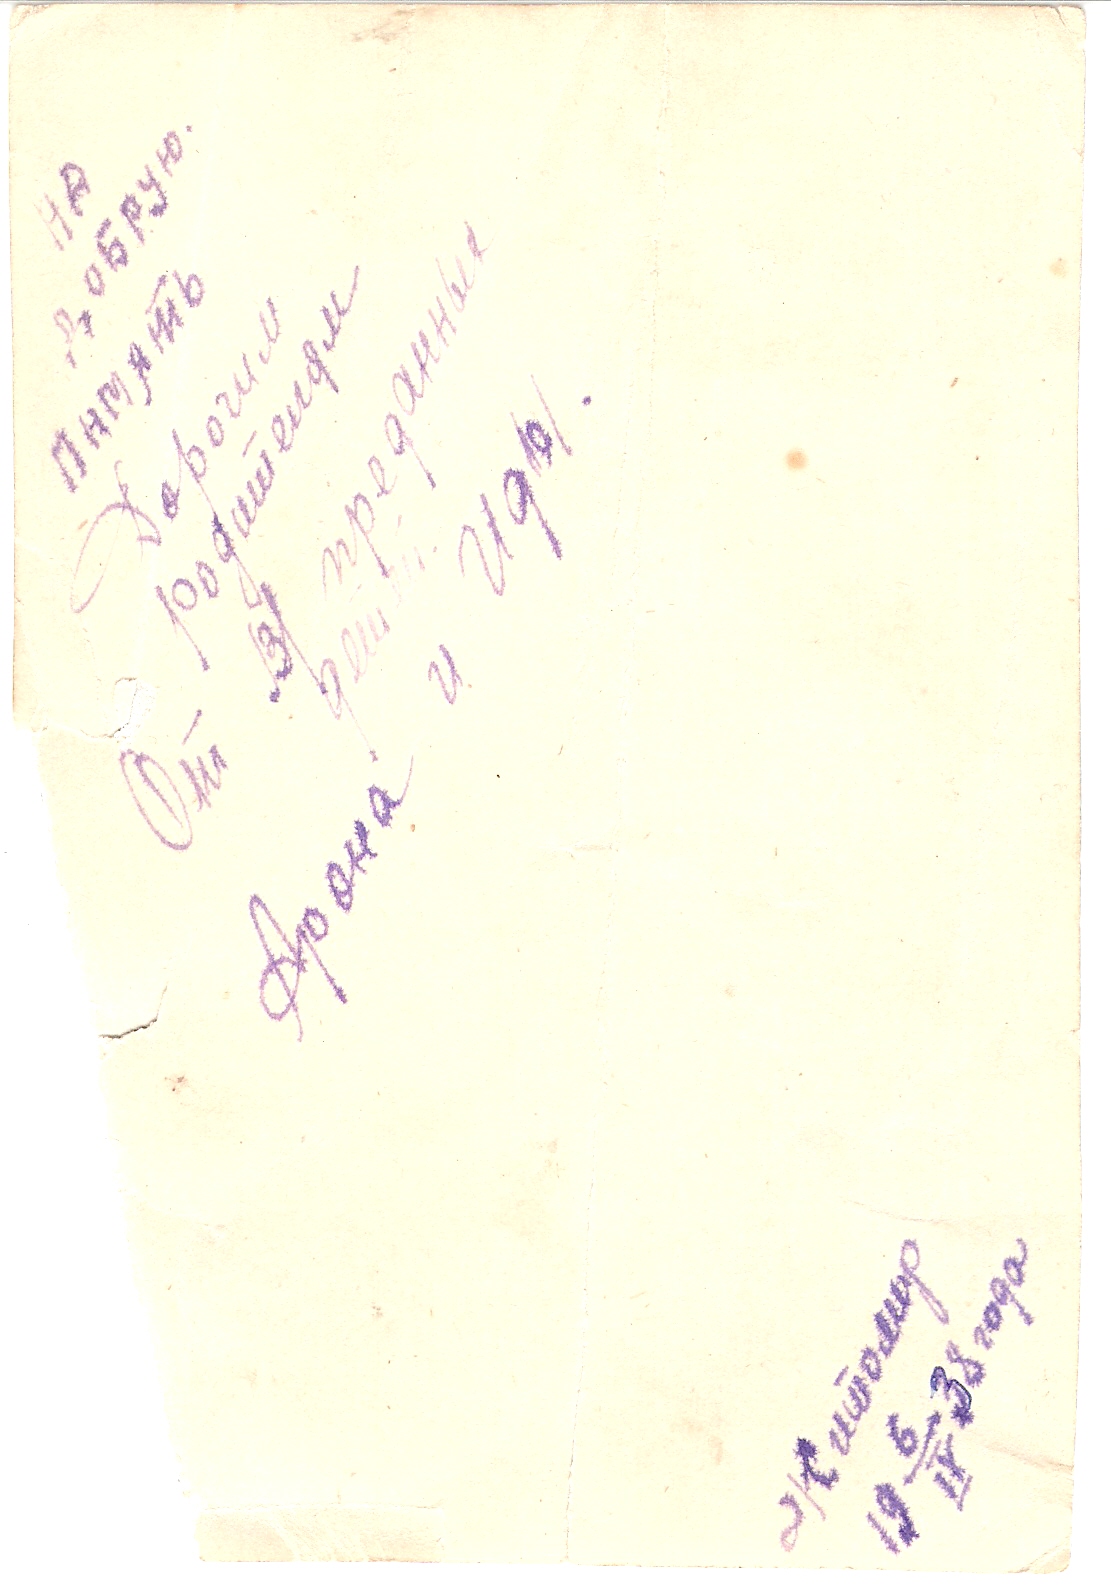 НА
ДОБРУЮ.
ПАМЯТЬ
Дорогим
родителям
От преданных
детей.
Арона и Иды.
Житомир
19 6/IX 38 года